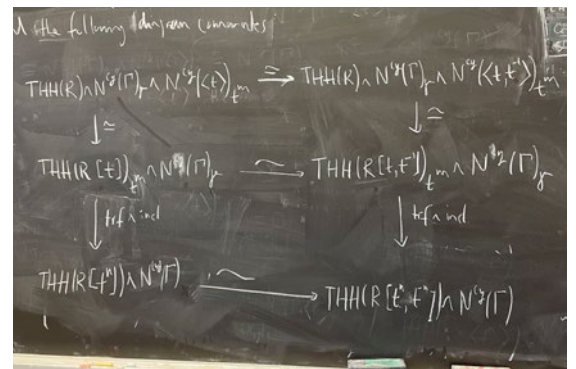 the following diagram commutes
THH(R)∧N^{cy}(Γ)_γ∧N^{cy}(⟨t⟩)_{t^m} ≅→ THH(R)∧N^{cy}(Γ)_γ∧N^{cy}(⟨t,t^{-1}⟩)_{t^m}
↓≃ ↓≃
THH(R[t])_{t^m}∧N^{cy}(Γ)_γ ~→ THH(R[t,t^{-1}])_{t^m}∧N^{cy}(Γ)_γ
↓trf∧incl ↓trf∧incl
THH(R[t^n])∧N^{cy}(Γ) ~→ THH(R[t^n,t^{-n}])∧N^{cy}(Γ)